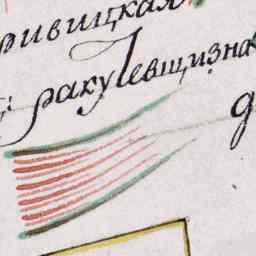 ривицкая
ракулевщизна